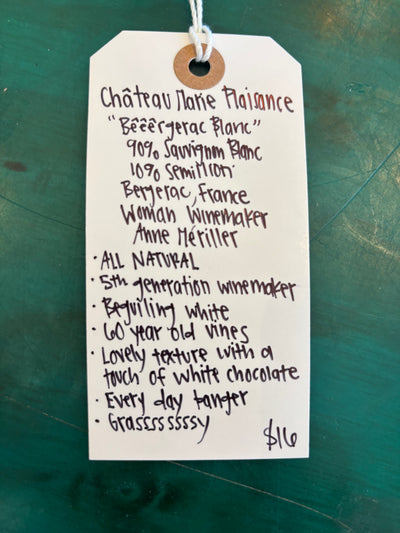 Château Marie Plaisance
"Bêêêrgerac Blanc"
90% Sauvignon Blanc
10% Semillon
Bergerac, France
Woman Winemaker
Anne Mériller
• ALL NATURAL
• 5th generation winemaker
• Beguiling white
• 60 year old vines
• Lovely texture with a
touch of white chocolate
• Every day banger
• Grasssssssy
$16